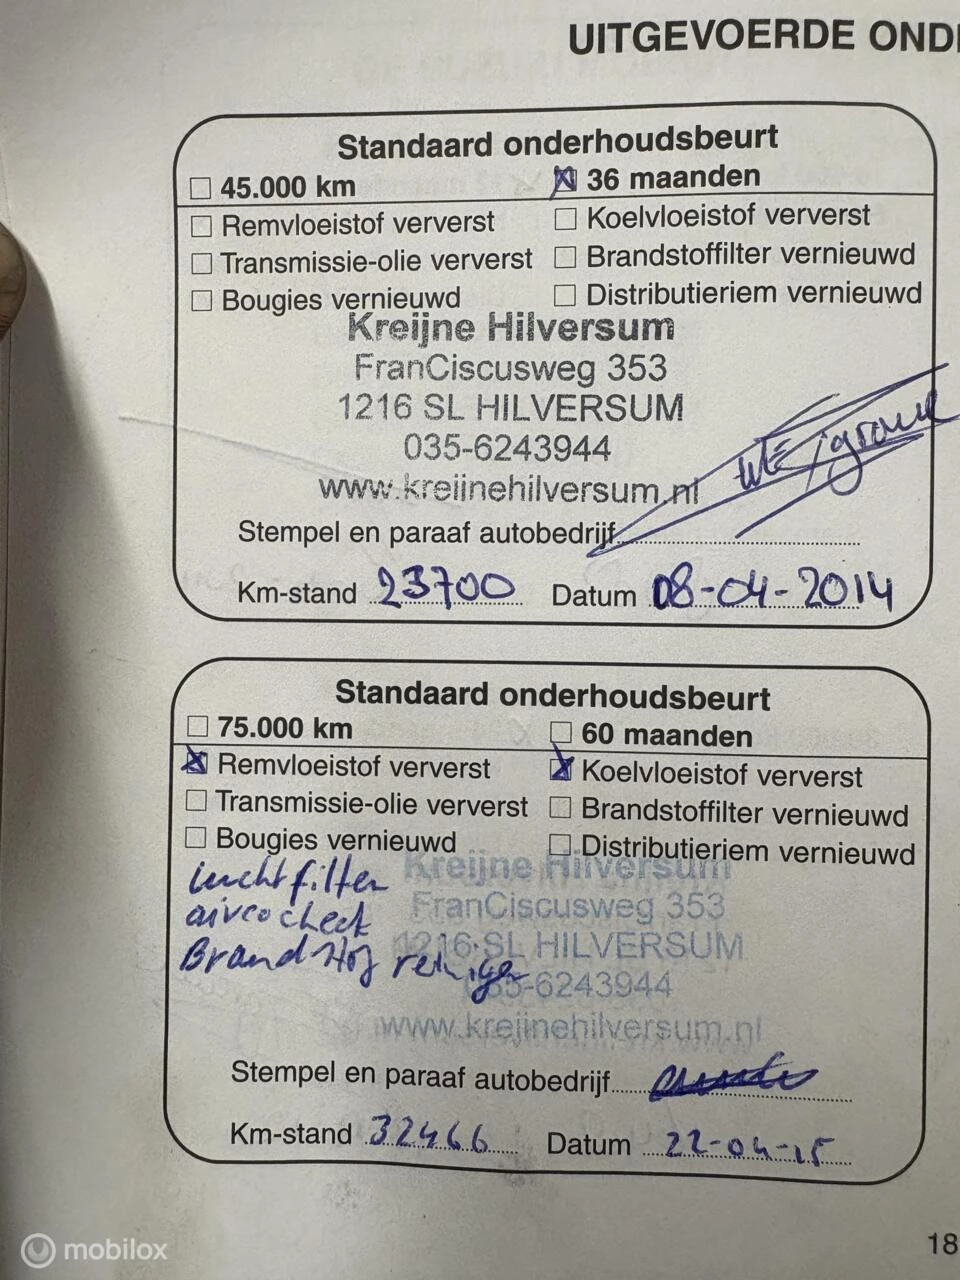 UITGEVOERDE OND
Standaard onderhoudsbeurt
45.000 km 36 maanden
Remvloeistof ververst Koelvloeistof ververst
Transmissie-olie ververst Brandstoffilter vernieuwd
Bougies vernieuwd Distributieriem vernieuwd
Kreijne Hilversum
FranCiscusweg 353
1216 SL HILVERSUM
035-6243944
www.kreijnehilversum.nl
Stempel en paraaf autobedrijf
Km-stand 23700 Datum 08-04-2014
Standaard onderhoudsbeurt
75.000 km 60 maanden
Remvloeistof ververst Koelvloeistof ververst
Transmissie-olie ververst Brandstoffilter vernieuwd
Bougies vernieuwd Distributieriem vernieuwd
luchtfilter
airco check
Brandstof reiniger
Kreijne Hilversum
FranCiscusweg 353
1216 SL HILVERSUM
035-6243944
www.kreijnehilversum.nl
Stempel en paraaf autobedrijf
Km-stand 32466 Datum 22-04-15
18
mobilox